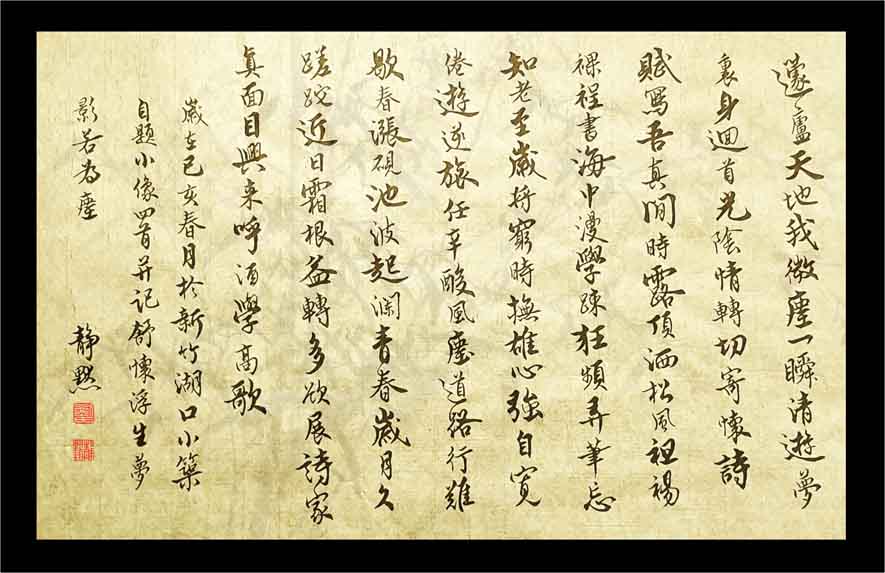 蘧廬天地我微塵一瞬清遊夢
裏身迴首光陰情轉切寄懷詩
賦寫吾真閒時露頂洒松風袒裼
裸裎書海中漫學疎狂頻弄筆忘
知老至歲將窮時撫雄心強自寬
倦遊逆旅任辛酸風塵道路行難
歇春漲硯池波起瀾青春歲月久
蹉跎近日霜根益轉多欲展詩家
真面目興来呼酒學高歌
歲在己亥春月於新竹湖口小築
自題小像四首并記舒懷浮生夢
影若為塵
靜默